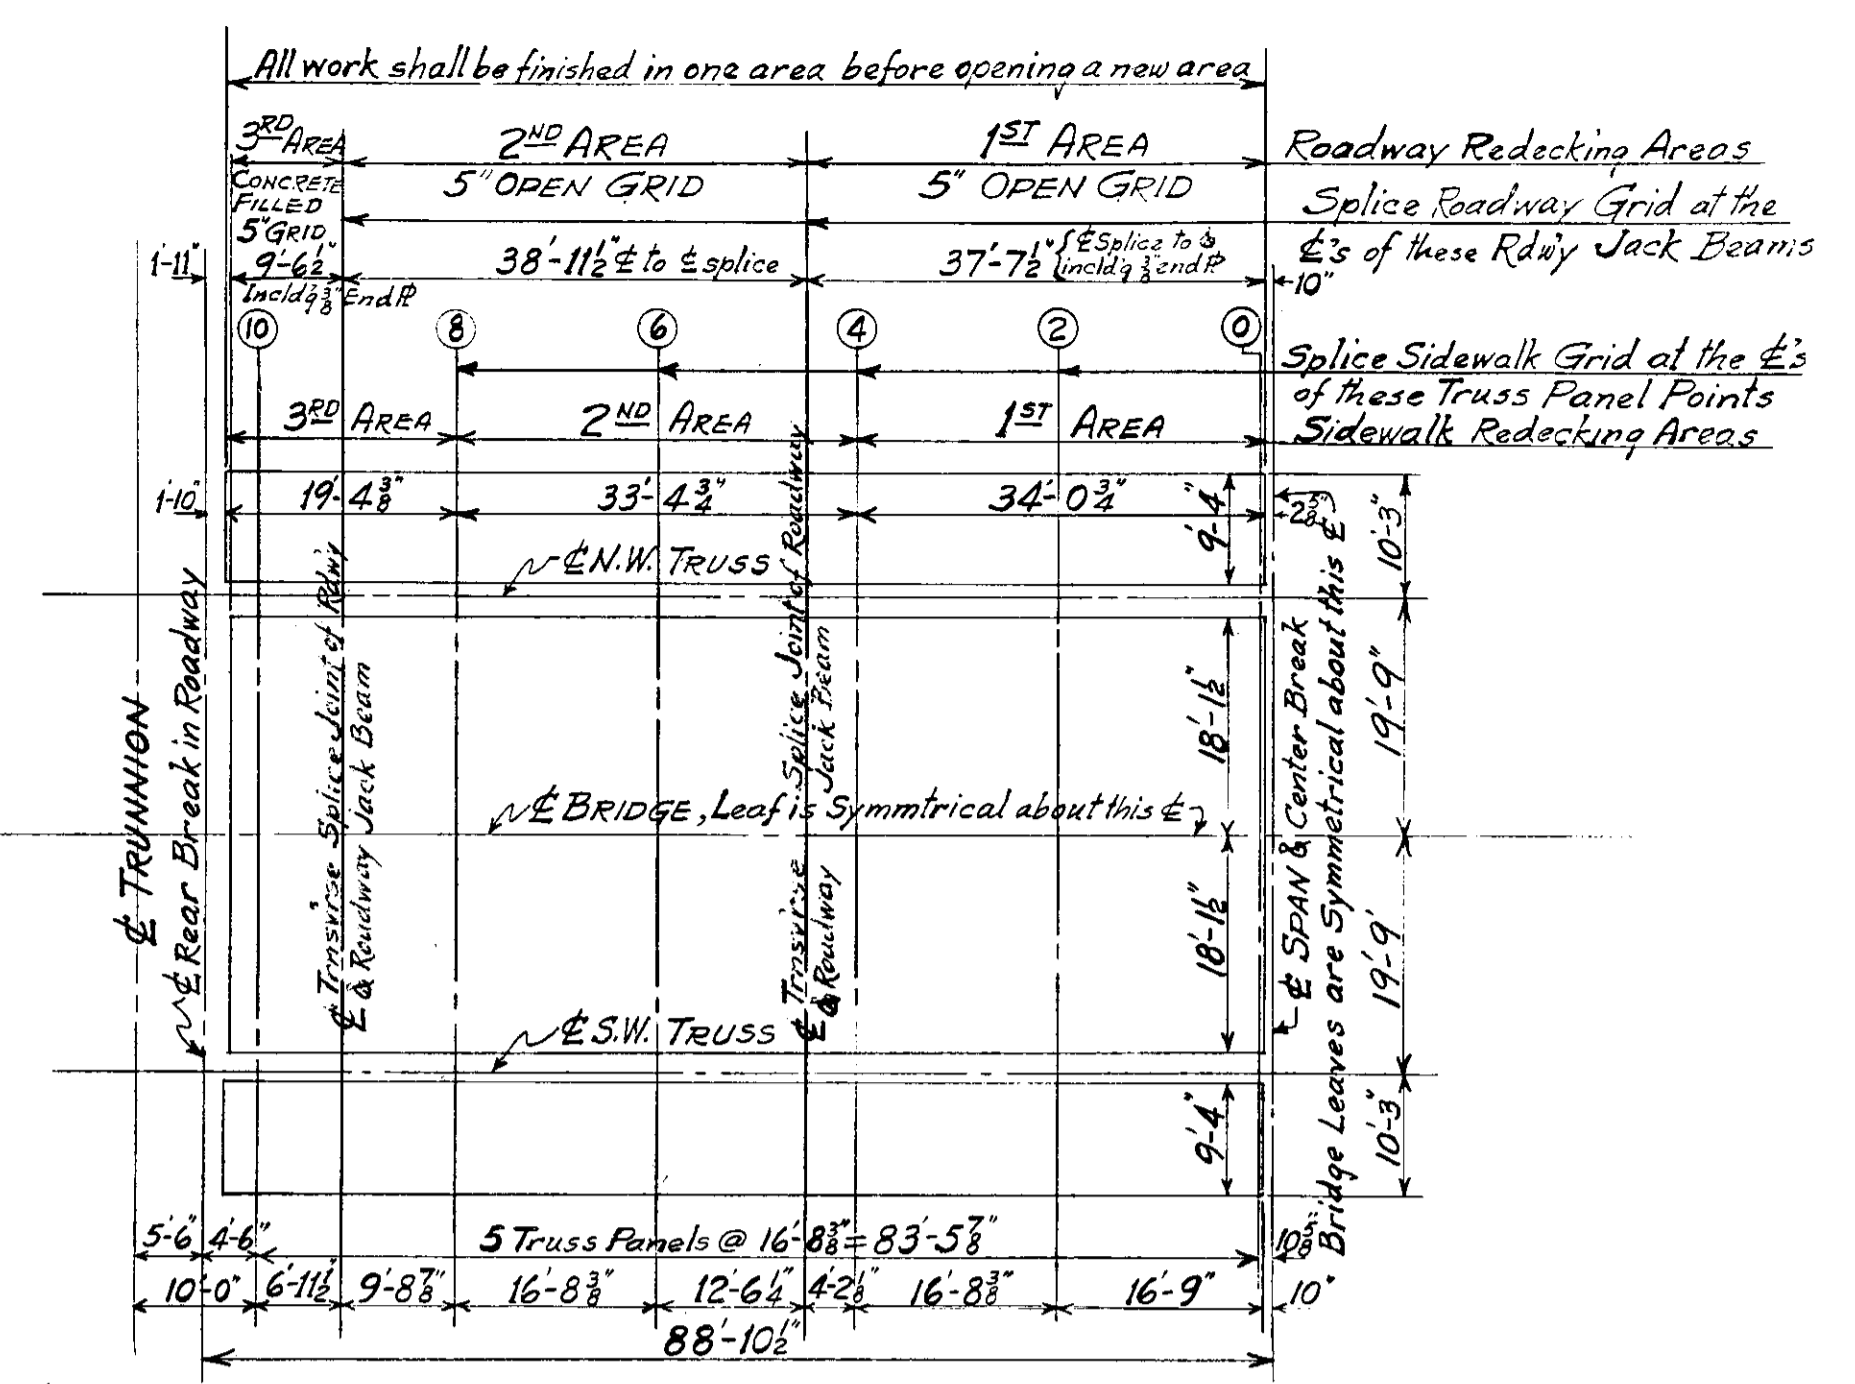 All work shall be finished in one area before opening a new area
3RD AREA
2ND AREA
1ST AREA
Roadway Redecking Areas
CONCRETE
FILLED
5" GRID
5" OPEN GRID
5" OPEN GRID
Splice Roadway Grid at the
℄'s of these Rdw'y Jack Beams
1'-11"
9'-6½"
Incld'g ⅜" End ⅊
38'-11½" ℄ to ℄ splice
37'-7½" { ℄ Splice to &
incld'g ⅜" end ⅊
10"
10
8
6
4
2
0
Splice Sidewalk Grid at the ℄'s
of these Truss Panel Points
3RD AREA
2ND AREA
1ST AREA
Sidewalk Redecking Areas
1'-10"
19'-4⅜"
33'-4¾"
34'-0¾"
9'-4"
2⅝"
10'-3"
℄ N.W. TRUSS
℄ TRUNNION
℄ Rear Break in Roadway
℄ Trnsv'rse Splice Joint of Rdw'y
℄ & Roadway Jack Beam
℄ Trnsv'rse Splice Joint of Roadway
℄ & Roadway Jack Beam
18'-1½"
19'-9"
℄ SPAN & Center Break
Bridge Leaves are Symmetrical about this ℄
℄ BRIDGE, Leaf is Symmtrical about this ℄
18'-1½"
19'-9'
℄ S.W. TRUSS
9'-4"
10'-3"
5'-6"
4'-6"
5 Truss Panels @ 16'-8⅜" = 83'-5⅞"
10⅝"
10'-0"
6'-11½"
9'-8⅞"
16'-8⅜"
12'-6¼"
4'-2⅛"
16'-8⅜"
16'-9"
10"
88'-10½"